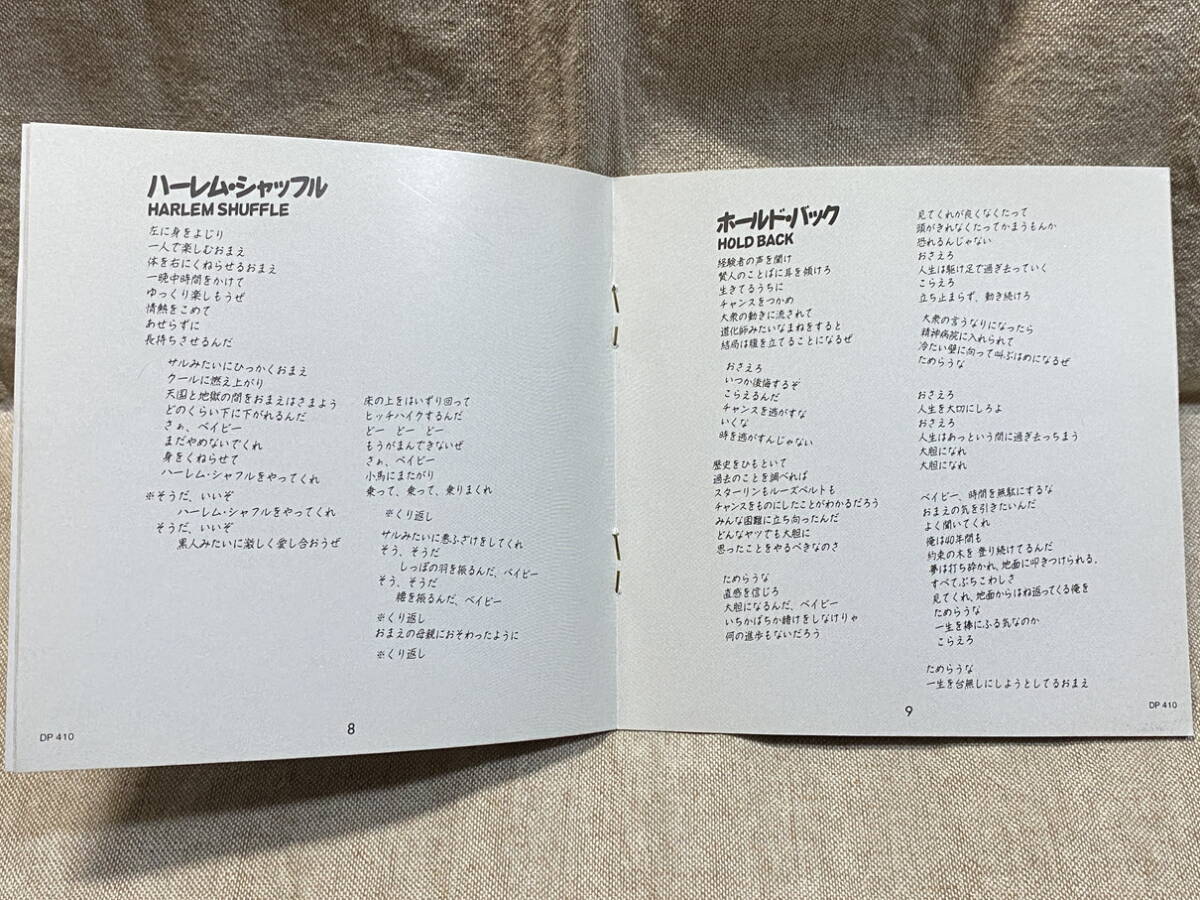 ハーレム・シャッフル
HARLEM SHUFFLE
左に身をよじり
一人で楽しむおまえ
体を右にくねらせるおまえ
一晩中時間をかけて
ゆっくり楽しもうぜ
情熱をこめて
あせらずに
長持ちさせるんだ
サルみたいにひっかくおまえ
クールに燃え上がり
天国と地獄の間をおまえはさまよう
どのくらい下に下がれるんだ
さぁ、ベイビー
まだやめないでくれ
身をくねらせて
ハーレム・シャッフルをやってくれ
※そうだ、いいぞ
ハーレム・シャッフルをやってくれ
そうだ、いいぞ
黒人みたいに激しく愛し合おうぜ
床の上をはいずり回って
ヒッチハイクするんだ
どー どー どー
もうがまんできないぜ
さぁ、ベイビー
小馬にまたがり
乗って、乗って、乗りまくれ
※くり返し
サルみたいに悪ふざけをしてくれ
そう、そうだ
しっぽの羽を振るんだ、ベイビー
そう、そうだ
腰を振るんだ、ベイビー
※くり返し
おまえの母親におそわったように
※くり返し
DP 410
8
ホールド・バック
HOLD BACK
経験者の声を聞け
賢人のことばに耳を傾けろ
生きてるうちに
チャンスをつかめ
大衆の動きに流されて
道化師みたいなまねをすると
結局は腹を立てることになるぜ
おさえろ
いつか後悔するぞ
こらえるんだ
チャンスを逃がすな
いくな
時を逃がすんじゃない
歴史をひもといて
過去のことを調べれば
スターリンもルーズベルトも
チャンスをものにしたことがわかるだろう
みんな困難に立ち向ったんだ
どんなヤツでも大胆に
思ったことをやるべきなのさ
ためらうな
直感を信じろ
大胆になるんだ、ベイビー
いちかばちか賭けをしなけりゃ
何の進歩もないだろう
見てくれが良くなくたって
頭がきれなくたってかまうもんか
恐れるんじゃない
おさえろ
人生は駆け足で過ぎ去っていく
こらえろ
立ち止まらず、動き続けろ
大衆の言うなりになったら
精神病院に入れられて
冷たい壁に向って叫ぶはめになるぜ
ためらうな
おさえろ
人生を大切にしろよ
おさえろ
人生はあっという間に過ぎ去っちまう
大胆になれ
大胆になれ
ベイビー、時間を無駄にするな
おまえの気を引きたいんだ
よく聞いてくれ
俺は40年間も
約束の木を登り続けてるんだ
夢は打ち砕かれ、地面に叩きつけられる、
すべてぶちこわしさ
見てくれ、地面からはね返ってくる俺を
ためらうな
一生を棒にふる気なのか
こらえろ
ためらうな
一生を台無しにしようとしてるおまえ
9
DP 410